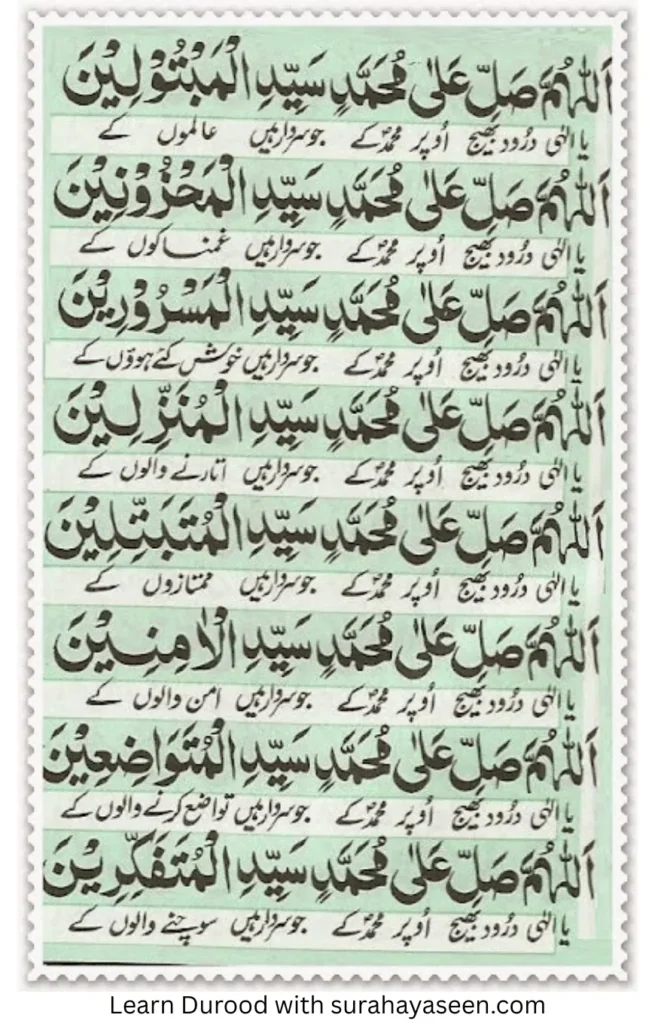 اَللّٰهُمَّ صَلِّ عَلٰى مُحَمَّدٍ سَيِّدِ الْمَبْتُوْلِيْنَ
یا الٰہی درُود بھیج اُوپر محمدؐ کے جو سردار ہیں عالموں کے
اَللّٰهُمَّ صَلِّ عَلٰى مُحَمَّدٍ سَيِّدِ الْمَحْزُوْنِيْنَ
یا الٰہی درُود بھیج اُوپر محمدؐ کے جو سردار ہیں غمناکوں کے
اَللّٰهُمَّ صَلِّ عَلٰى مُحَمَّدٍ سَيِّدِ الْمَسْرُوْرِيْنَ
یا الٰہی درُود بھیج اُوپر محمدؐ کے جو سردار ہیں خوش کئے ہوؤں کے
اَللّٰهُمَّ صَلِّ عَلٰى مُحَمَّدٍ سَيِّدِ الْمُنَزِّلِيْنَ
یا الٰہی درُود بھیج اُوپر محمدؐ کے جو سردار ہیں اتارنے والوں کے
اَللّٰهُمَّ صَلِّ عَلٰى مُحَمَّدٍ سَيِّدِ الْمُتَبَتِّلِيْنَ
یا الٰہی درُود بھیج اُوپر محمدؐ کے جو سردار ہیں ممتازوں کے
اَللّٰهُمَّ صَلِّ عَلٰى مُحَمَّدٍ سَيِّدِ الْاٰمِنِيْنَ
یا الٰہی درُود بھیج اُوپر محمدؐ کے جو سردار ہیں امن والوں کے
اَللّٰهُمَّ صَلِّ عَلٰى مُحَمَّدٍ سَيِّدِ الْمُتَوَاضِعِيْنَ
یا الٰہی درُود بھیج اُوپر محمدؐ کے جو سردار ہیں تواضع کرنے والوں کے
اَللّٰهُمَّ صَلِّ عَلٰى مُحَمَّدٍ سَيِّدِ الْمُتَفَكِّرِيْنَ
یا الٰہی درُود بھیج اُوپر محمدؐ کے جو سردار ہیں سوچنے والوں کے
Learn Durood with surahayaseen.com